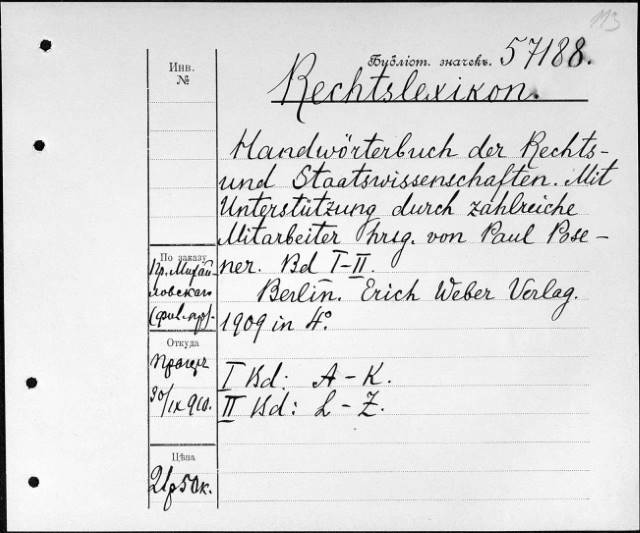 113
Бубліот. значекъ. 57188.
Инв.
№
Rechtslexikon.
Handwörterbuch der Rechts-
und Staatswissenschaften. Mit
Unterstützung durch zahlreiche
Mitarbeiter hrsg. von Paul Pose-
ner. Bd I-II.
Berlin. Erich Weber Verlag.
1909 in 4°.
I Bd: A - K.
II Bd: L - Z.
По заказу
Пр. Михай
ловскаго
Откуда
30/IX 910.
Цѣна
21р 50к.